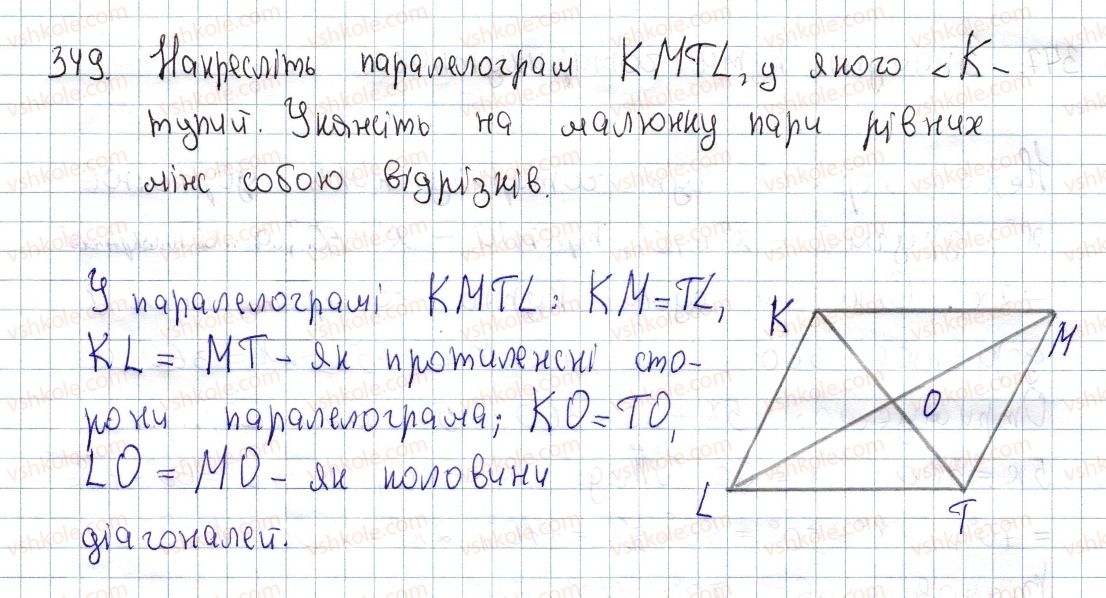 349. Накресліть паралелограм KMTL, у якого <K-
тупий. Укажіть на малюнку пари рівних
між собою відрізків.
У паралелограмі KMTL: KM=TL,
KL = MT - як протилежні сто-
рони паралелограма; KO=TO,
LO = MO - як половини
діагоналей.
K
M
O
L
T
vshkole.com